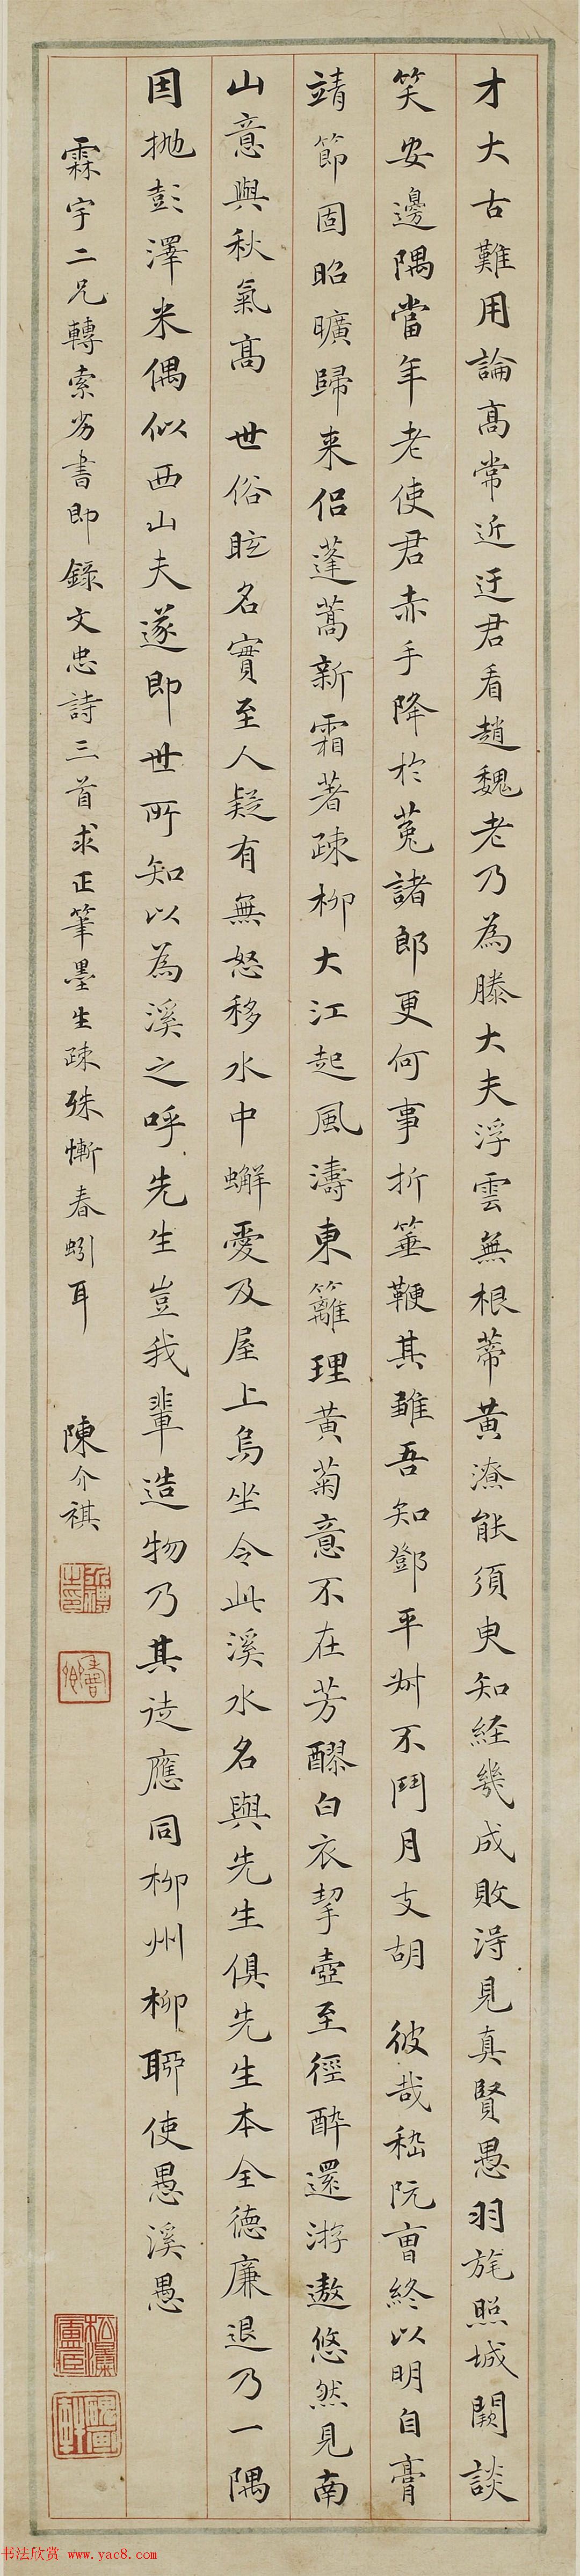 才大古難用論高常近迂君看趙魏老乃為滕大夫浮雲無根蒂黃潦能須臾知經幾成敗得見真賢愚羽旄照城闕談
笑安邊隅當年老使君赤手降於菟諸郎更何事折箠鞭其雛吾知鄧平叔不鬥月支胡 彼哉嵇阮曹終以明自膏
靖節固昭曠歸来侣蓬蒿新霜著疎柳大江起風濤東籬理黃菊意不在芳醪白衣挈壺至徑醉還游遨悠然見南
山意與秋氣高 世俗眩名實至人疑有無怒移水中蠏愛及屋上烏坐令此溪水名與先生俱先生本全德廉退乃一隅
因抛彭澤米偶似西山夫遂即世所知以為溪之呼先生豈我輩造物乃其徒應同柳州柳聊使愚溪愚
霖宇二兄轉索劣書即錄文忠詩三首求正筆墨生疎殊慚春蚓耳
陳介祺
书法欣赏 www.yac8.com